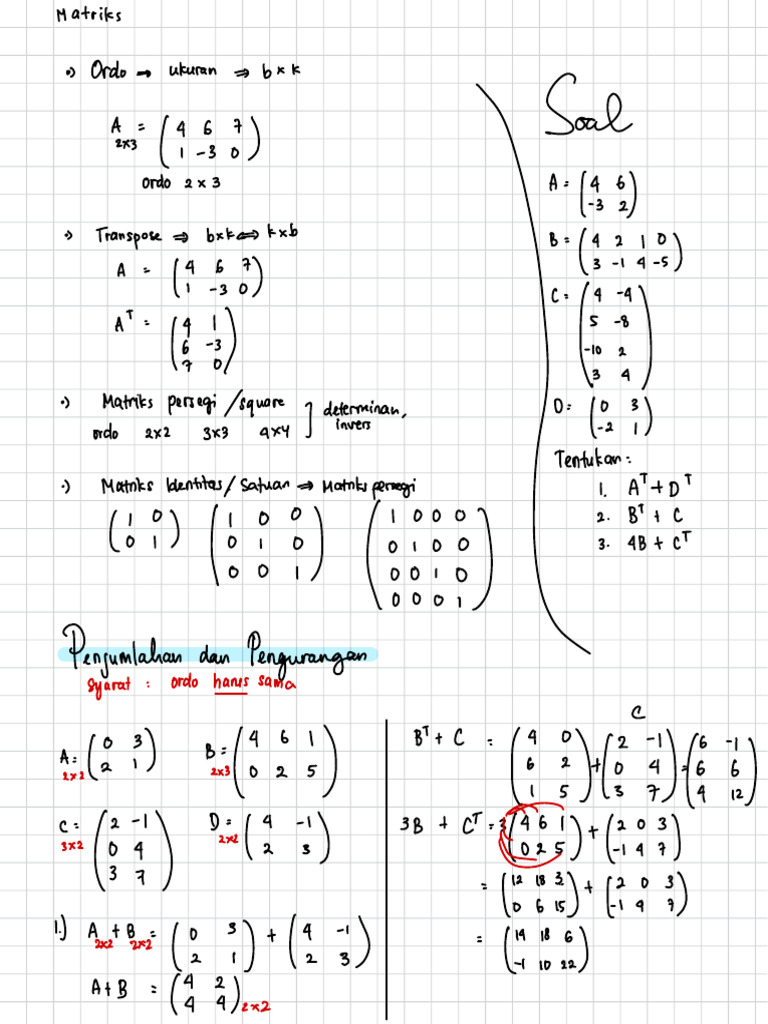 Matriks
•) Ordo → ukuran ⇒ b × k
A = ( 4 6 7
2×3 1 -3 0 )
Ordo 2 × 3
•) Transpose ⇒ b×k ⇔ k×b
A = ( 4 6 7
1 -3 0 )
Aᵀ = ( 4 1
6 -3
7 0 )
•) Matriks persegi / square ] determinan,
ordo 2×2 3×3 4×4 invers
•) Matriks Identitas / Satuan ⇒ Matriks persegi
( 1 0
0 1 )
( 1 0 0
0 1 0
0 0 1 )
( 1 0 0 0
0 1 0 0
0 0 1 0
0 0 0 1 )
Soal
A = ( 4 6
-3 2 )
B = ( 4 2 1 0
3 -1 4 -5 )
C = ( 4 -4
5 -8
-10 2
3 4 )
D = ( 0 3
-2 1 )
Tentukan :
1. Aᵀ + Dᵀ
2. Bᵀ + C
3. 4B + Cᵀ
Penjumlahan dan Pengurangan
Syarat : ordo harus sama
A = ( 0 3
2×2 2 1 )
B = ( 4 6 1
2×3 0 2 5 )
C = ( 2 -1
3×2 0 4
3 7 )
D = ( 4 -1
2×2 2 3 )
1.) A + B = ( 0 3 + ( 4 -1
2×2 2×2 2 1 ) 2 3 )
A+B = ( 4 2
4 4 ) 2×2
C
Bᵀ + C = ( 4 0 + ( 2 -1 = ( 6 -1
6 2 0 4 6 6
1 5 ) 3 7 ) 4 12 )
3B + Cᵀ = 3 ( 4 6 1 + ( 2 0 3
0 2 5 ) -1 4 7 )
= ( 12 18 3 + ( 2 0 3
0 6 15 ) -1 4 7 )
= ( 14 18 6
-1 10 22 )